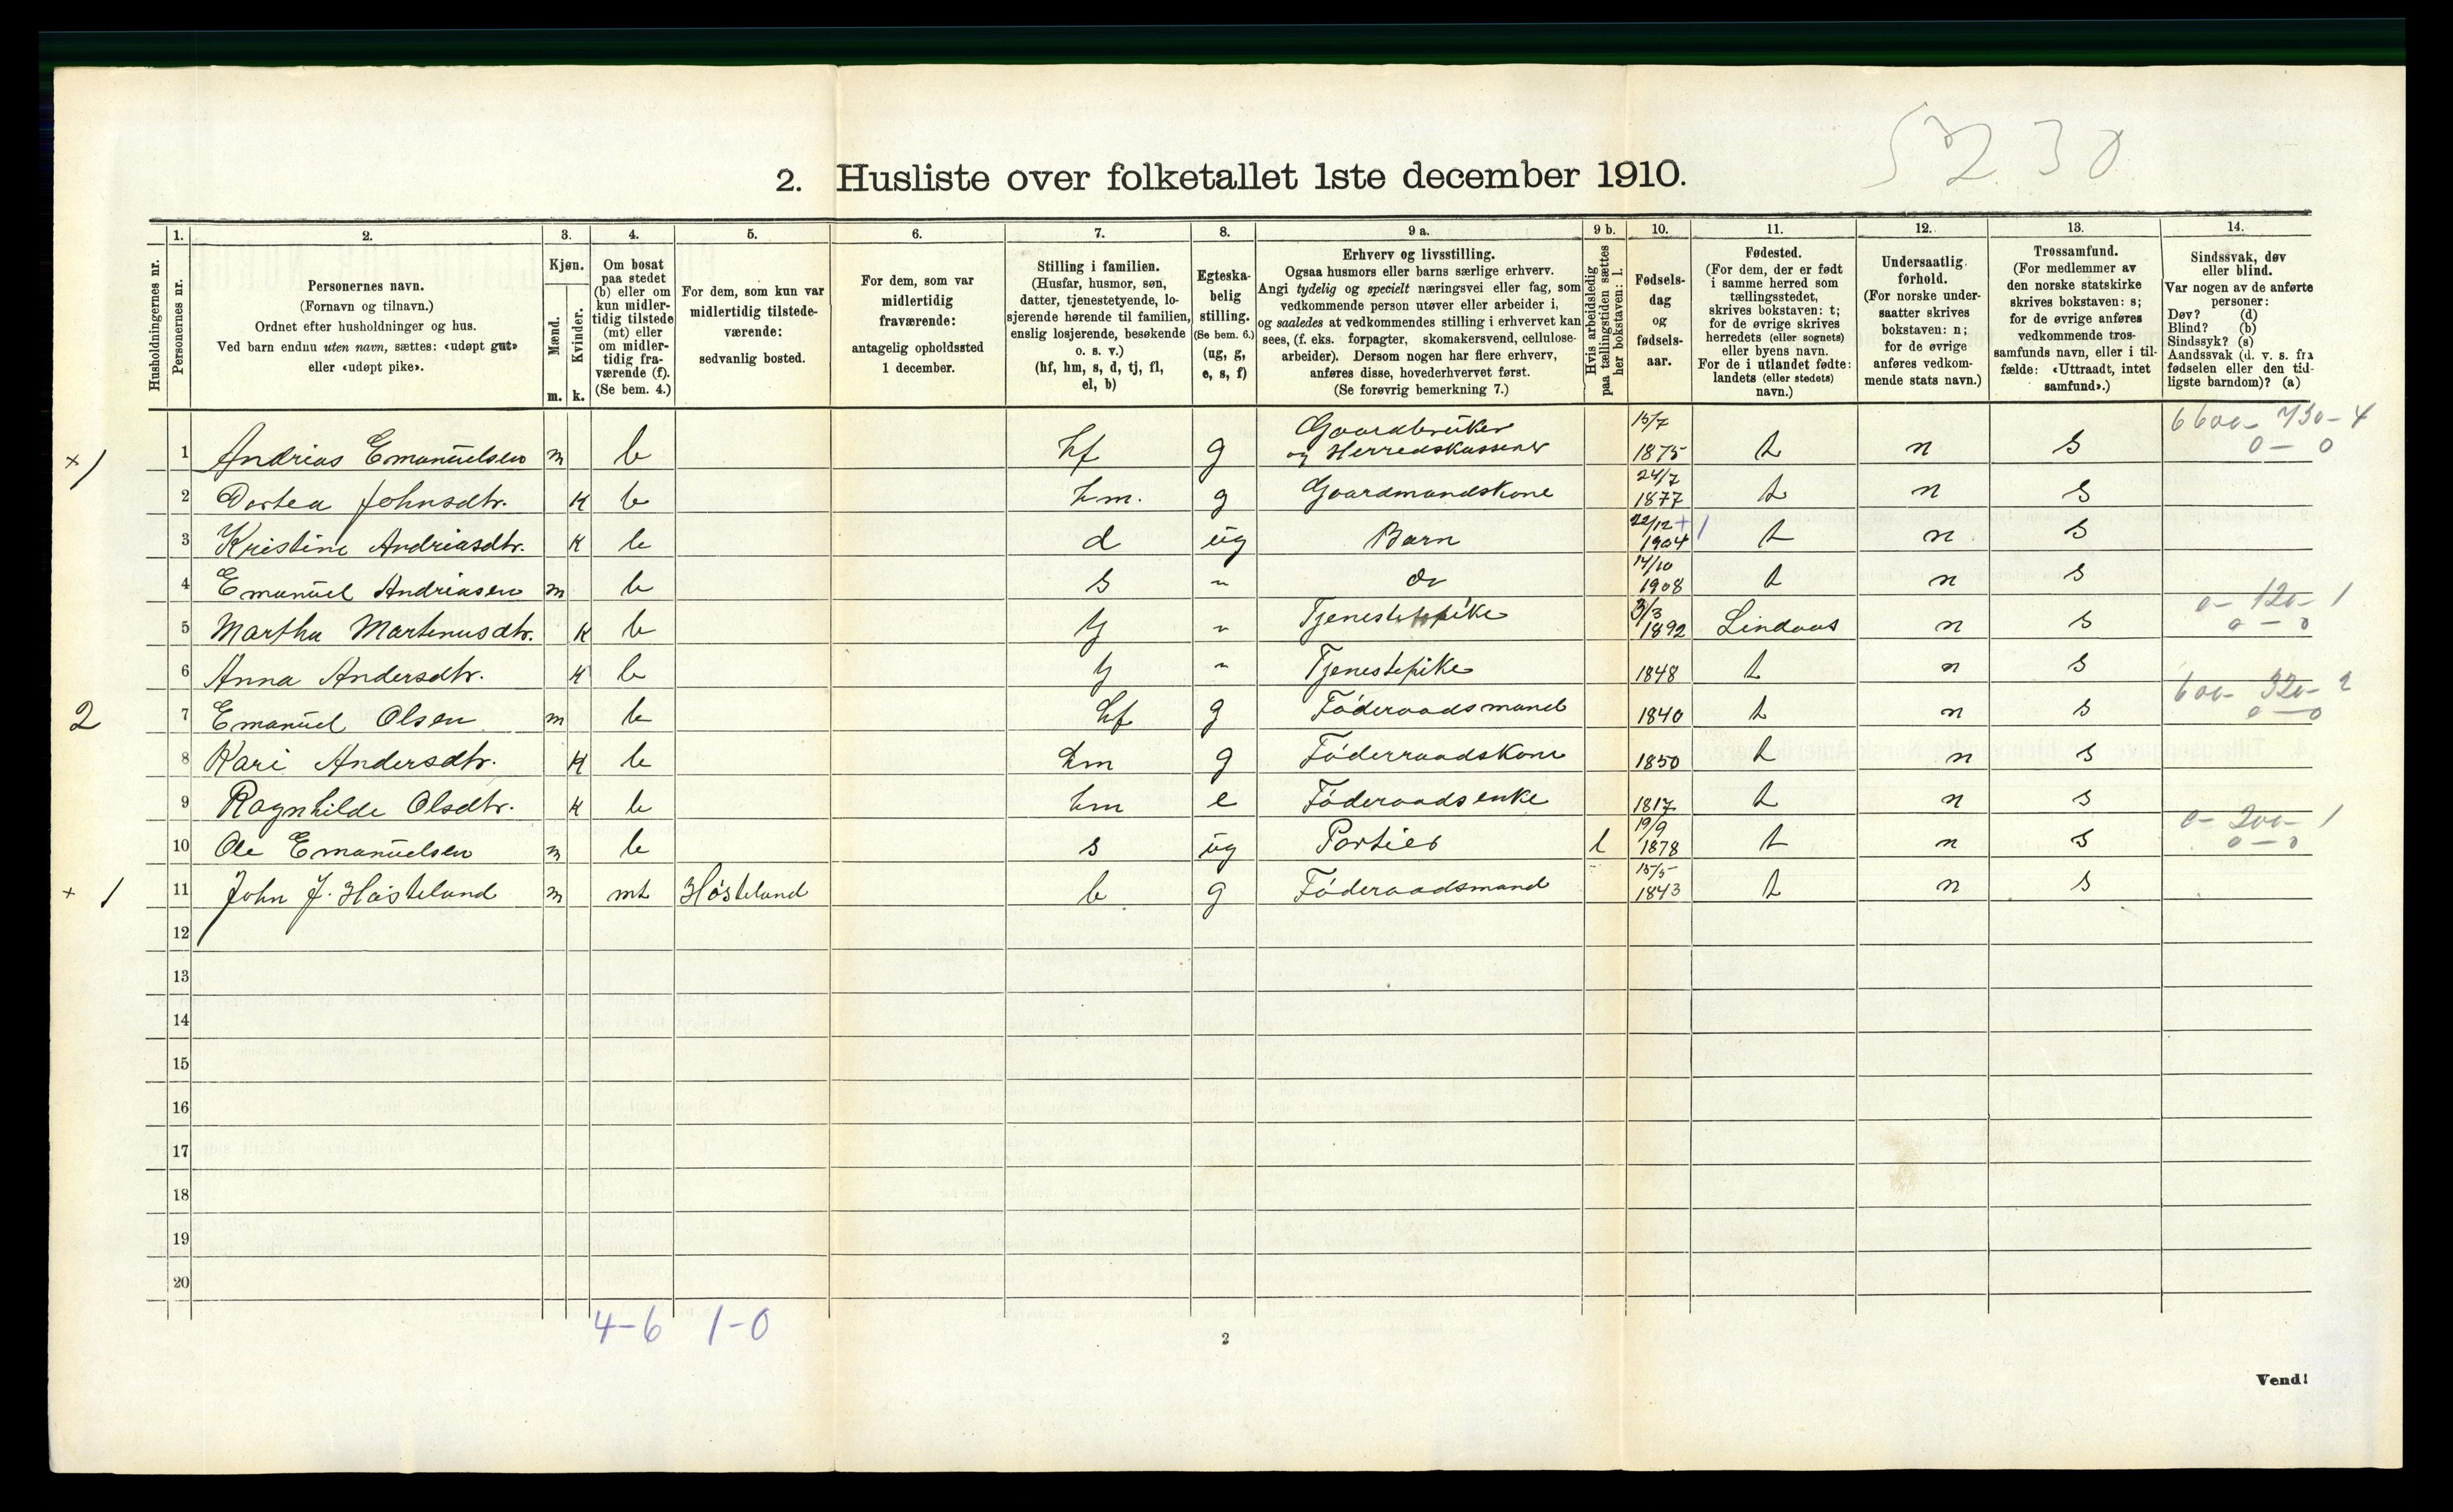 5230
2. Husliste over folketallet 1ste december 1910.
Husholdningernes nr.
1. Personernes nr.
2. Personernes navn.
(Fornavn og tilnavn.)
Ordnet efter husholdninger og hus.
Ved barn endnu uten navn, sættes: «udøpt gut»
eller «udøpt pike».
3. Kjøn.
Mænd. m.
Kvinder. k.
4. Om bosat
paa stedet
(b) eller om
kun midler-
tidig tilstede
(mt) eller
om midler-
tidig fra-
værende (f).
(Se bem. 4.)
5. For dem, som kun var
midlertidig tilstede-
værende:
sedvanlig bosted.
6. For dem, som var
midlertidig
fraværende:
antagelig opholdssted
1 december.
7. Stilling i familien.
(Husfar, husmor, søn,
datter, tjenestetyende, lo-
sjerende hørende til familien,
enslig losjerende, besøkende
o. s. v.)
(hf, hm, s, d, tj, fl,
el, b)
8. Egteska-
belig
stilling.
(Se bem. 6.)
(ug, g,
e, s, f)
9 a. Erhverv og livsstilling.
Ogsaa husmors eller barns særlige erhverv.
Angi tydelig og specielt næringsvei eller fag, som
vedkommende person utøver eller arbeider i,
og saaledes at vedkommendes stilling i erhvervet kan
sees, (f. eks. forpagter, skomakersvend, cellulose-
arbeider). Dersom nogen har flere erhverv,
anføres disse, hovederhvervet først.
(Se forøvrig bemerkning 7.)
9 b. Hvis arbeidsledig
paa tællingstiden sættes
her bokstaven: l.
10. Fødsels-
dag
og
fødsels-
aar.
11. Fødested.
(For dem, der er født
i samme herred som
tællingsstedet,
skrives bokstaven: t;
for de øvrige skrives
herredets (eller sognets)
eller byens navn.
For de i utlandet fødte:
landets (eller stedets)
navn.)
12. Undersaatlig
forhold.
(For norske under-
saatter skrives
bokstaven: n;
for de øvrige
anføres vedkom-
mende stats navn.)
13. Trossamfund.
(For medlemmer av
den norske statskirke
skrives bokstaven: s;
for de øvrige anføres
vedkommende tros-
samfunds navn, eller i til-
fælde: «Uttraadt, intet
samfund».)
14. Sindssvak, døv
eller blind.
Var nogen av de anførte
personer:
Døv? (d)
Blind? (b)
Sindssyk? (s)
Aandssvak (d. v. s. fra
fødselen eller den tid-
ligste barndom)? (a)
x 1 1 Andrias Emanuelsen m b hf g Gaardbruker og Herredskasserer 15/7 1875 t n s 6600- 730-4 0-0
2 Dortea Johnsdtr. k b hm. g Gaardmandskone 24/7 1877 t n s
3 Kristine Andriasdtr. k b d ug Barn 22/12 1904 + 1 t n s
4 Emanuel Andriasen m b s " do 14/10 1908 t n s
5 Martha Martinusdtr. k b tj " Tjenestepike 3/3 1892 Lindaas n s 0-120-1 0-0
6 Anna Andersdtr. k b tj " Tjenestepike 1848 t n s
2 7 Emanuel Olsen m b hf g Föderaadsmand 1840 t n s 600- 320-2 0-0
8 Kari Andersdtr. k b hm g Föderraadskone 1850 t n s
9 Ragnhilde Olsdtr. k b hm e Föderaadsenke 1817 t n s
10 Ole Emanuelsen m b s ug Portier l 19/9 1878 t n s 0-200-1 0-0
+ 1 11 John J. Hösteland m mt Hösteland b g Föderaadsmand 15/5 1843 t n s
12
13
14
15
16
17
18
19
20
4-6 1-0
2
Vend!